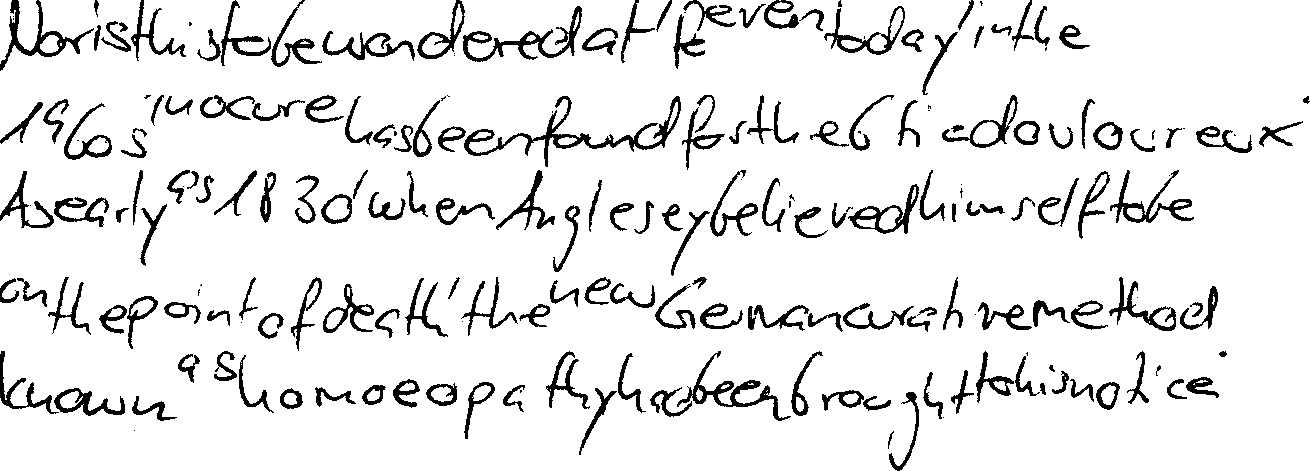 Nor is this to be wondered at, for even today, in the
1960s, no cure has been found for the tic douloureux.
As early as 1830, when Anglesey believed himself to be
on the point of death, the new German curative method
known as homoeopathy had been brought to his notice.